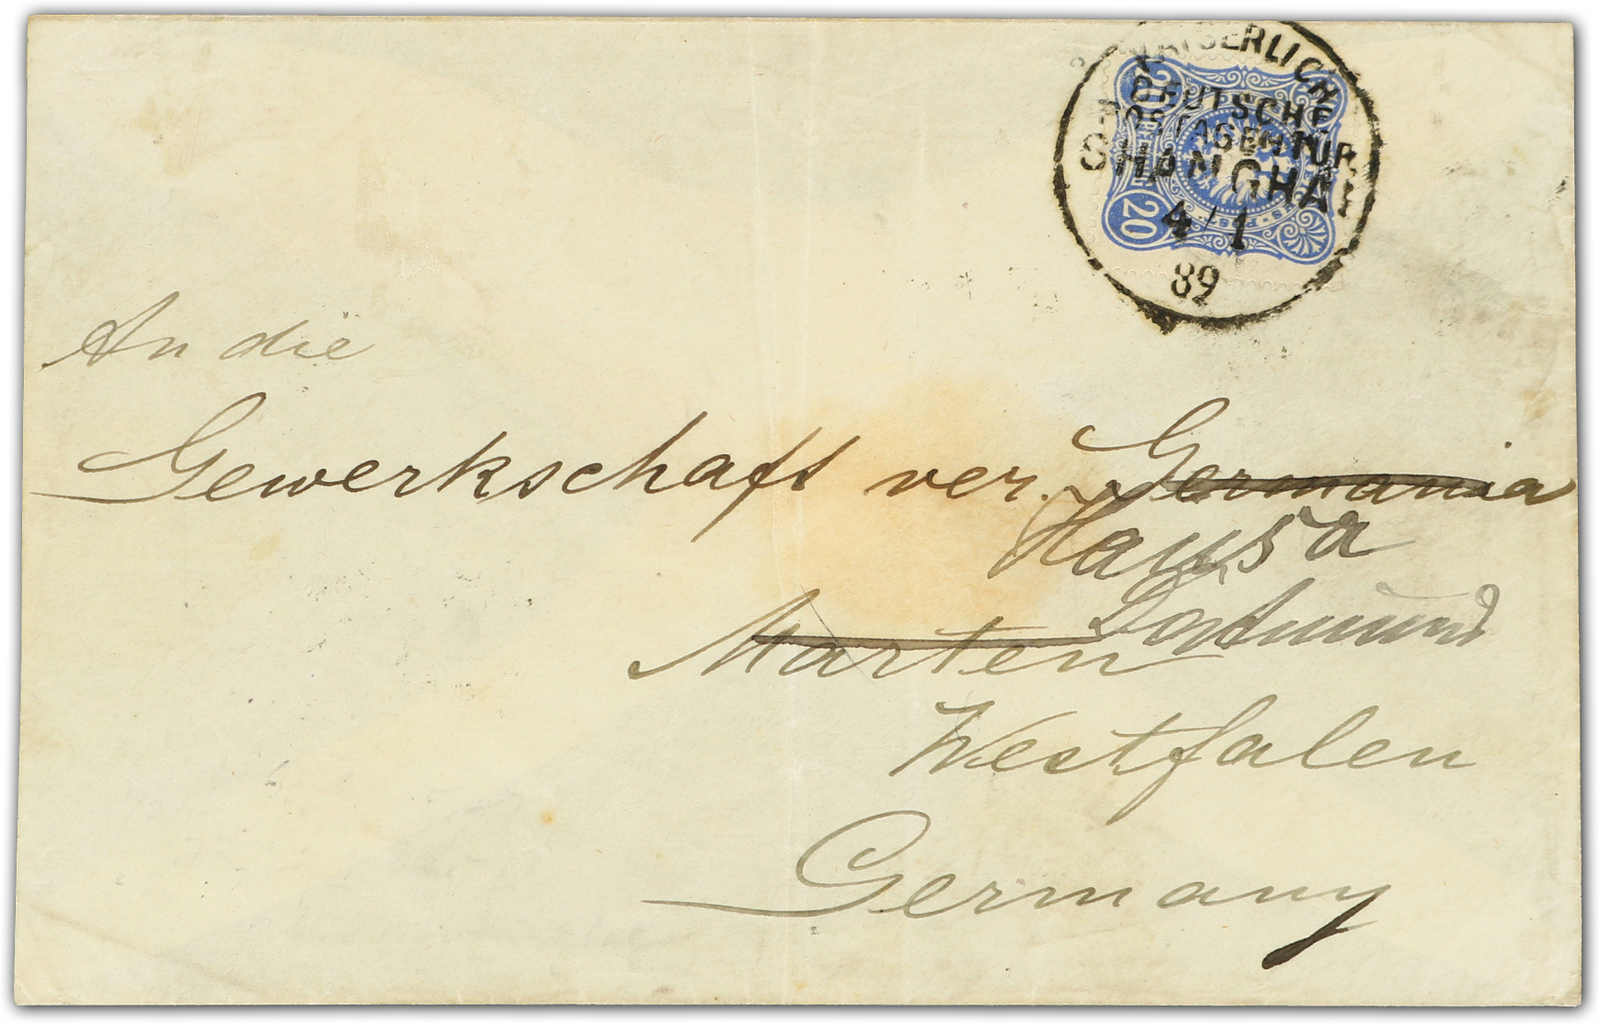 KAISERLICH
DEUTSCHE
POSTAGENTUR
SHANGHAI
4/1
89
20
An die
Gewerkschaft ver. Germania
Hansa
Marten Dortmund
Westfalen
Germany